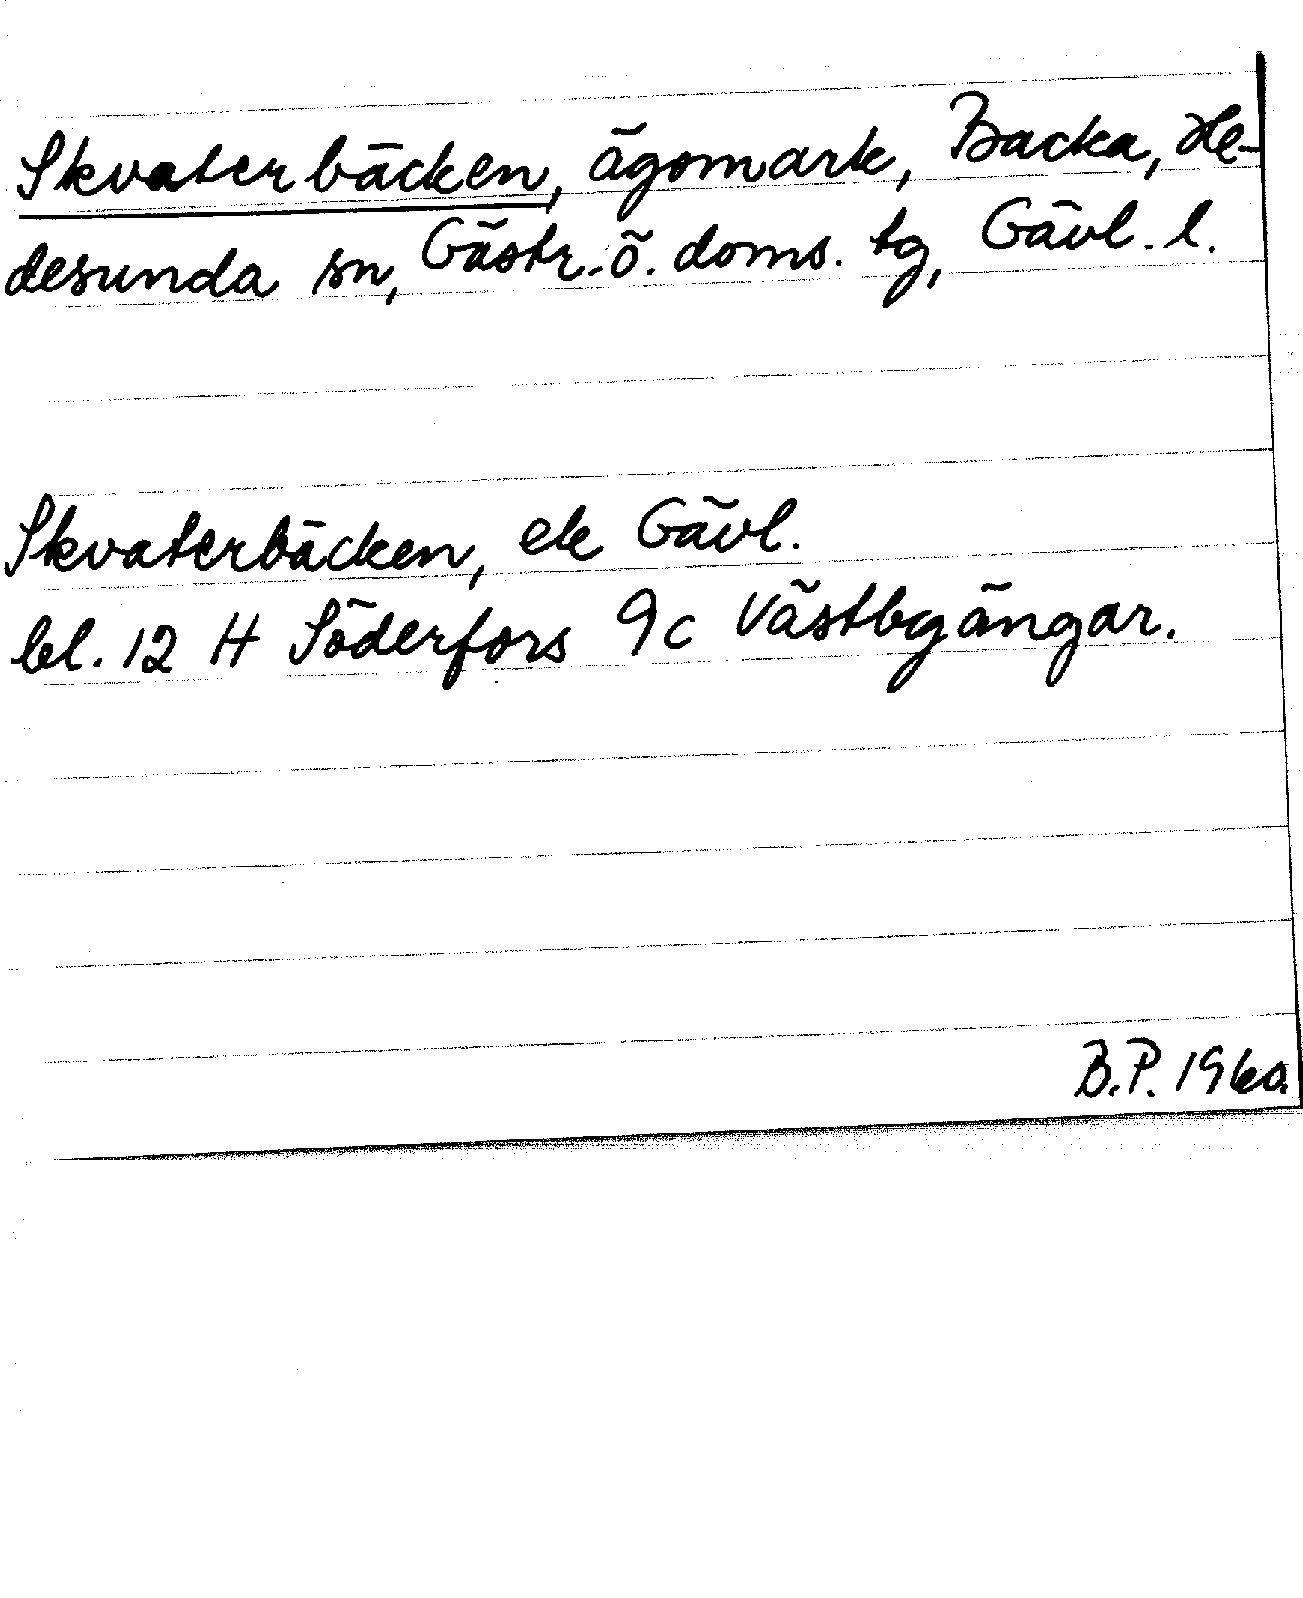 Skvaterbäcken, ägomark, Backa, He-
desunda sn, Gästr. ö. doms. tg, Gävl. l.
Skvaterbäcken, ek Gävl.
bl. 12 H Söderfors 9c Västbgängar.
B.P. 1960.